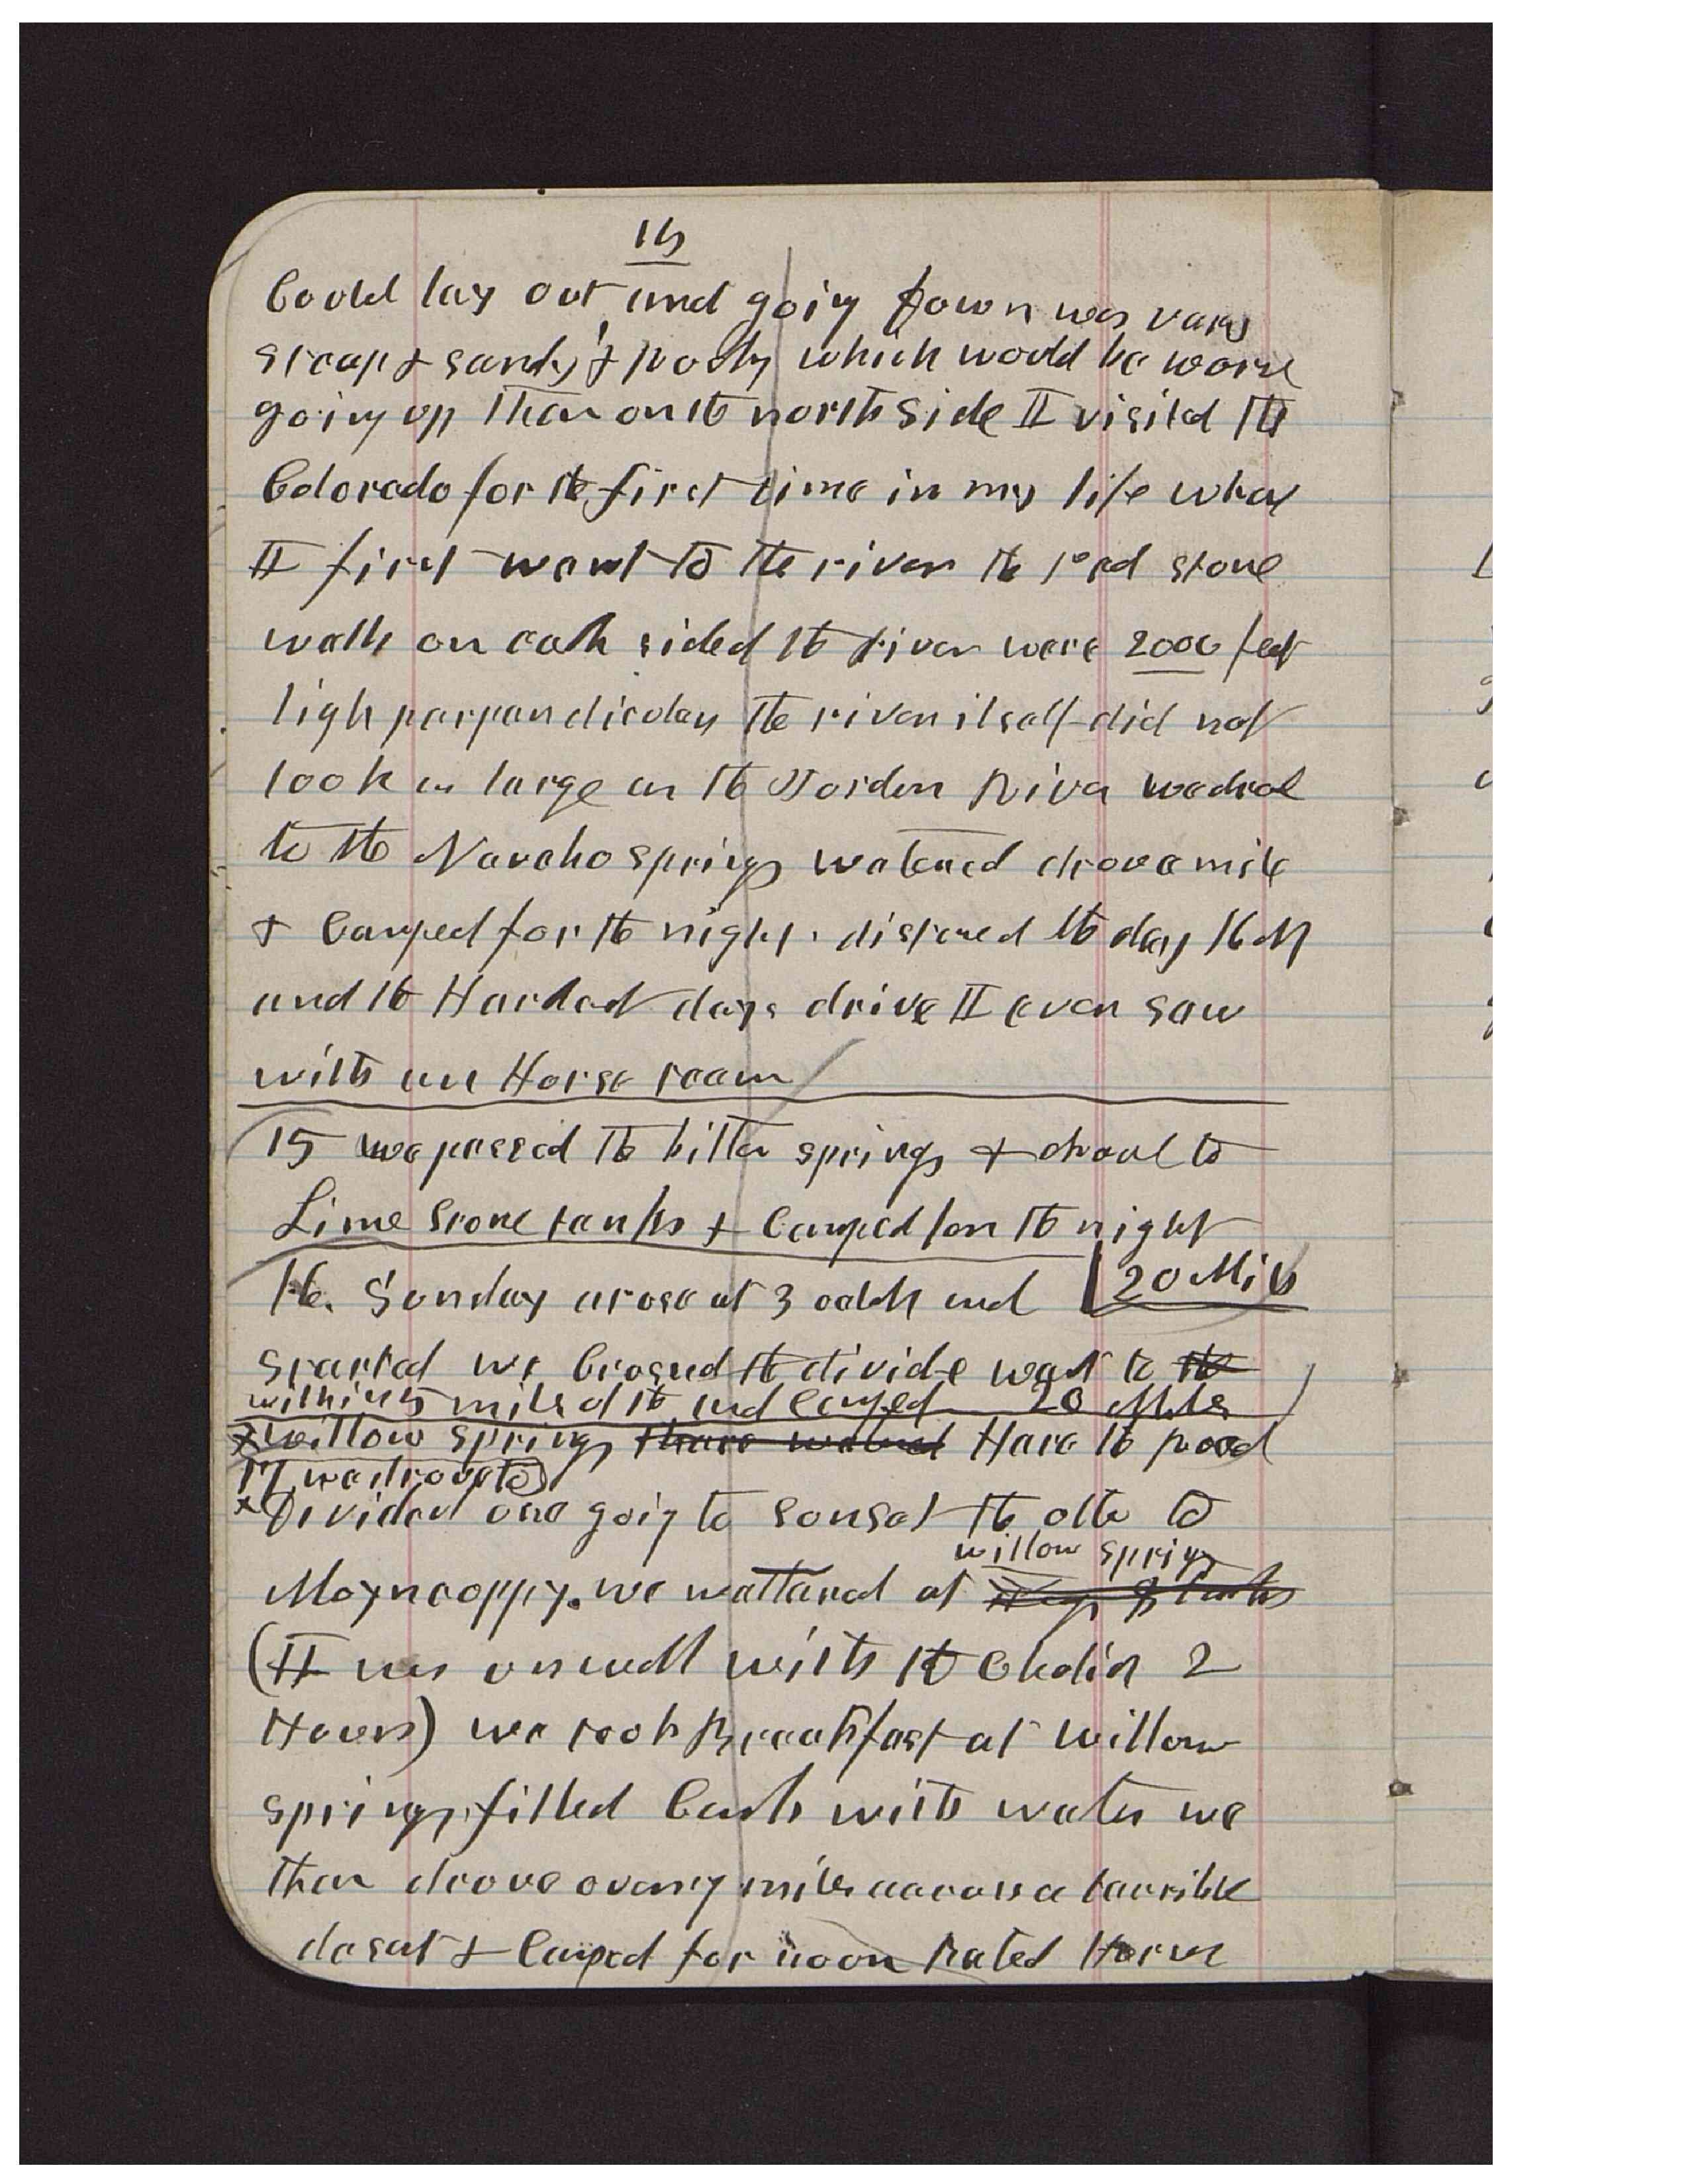 15
Could lay out and going down was vary
steap & sandy & Rocky which would be worse
going up than on the north side I visited the
Colorado for the first time in my life whar
I first went to the river the red stone
walls on each side of the river were 2000 feet
high parpandicular the river itself did not
look as large as the Jordon River
to the Navaho springs watered drove a mile
& Camped for the night distance of the day 16 M
and the Hardest days drive I ever saw
with an Horse team
15 we passed the bitter springs & drove to
Lime Stone tanks & Camped for the night
20 Miles
16. Sunday arose at 3 oclok and
started we Crossed the divide went to the
within 5 miles of it and camped 20 Miles
willow springs thare watered Hare the road
17 we drove to
Divided one going to sonset the other to
willow springs
Moyncoppy. we wattered at
(I was unwell with the Cholic 2
Hours) we took Breakfast at willow
springs filled Casks with water we
than drove over 7 miles across a tarrible
desart & Camped for noon Rated Horses